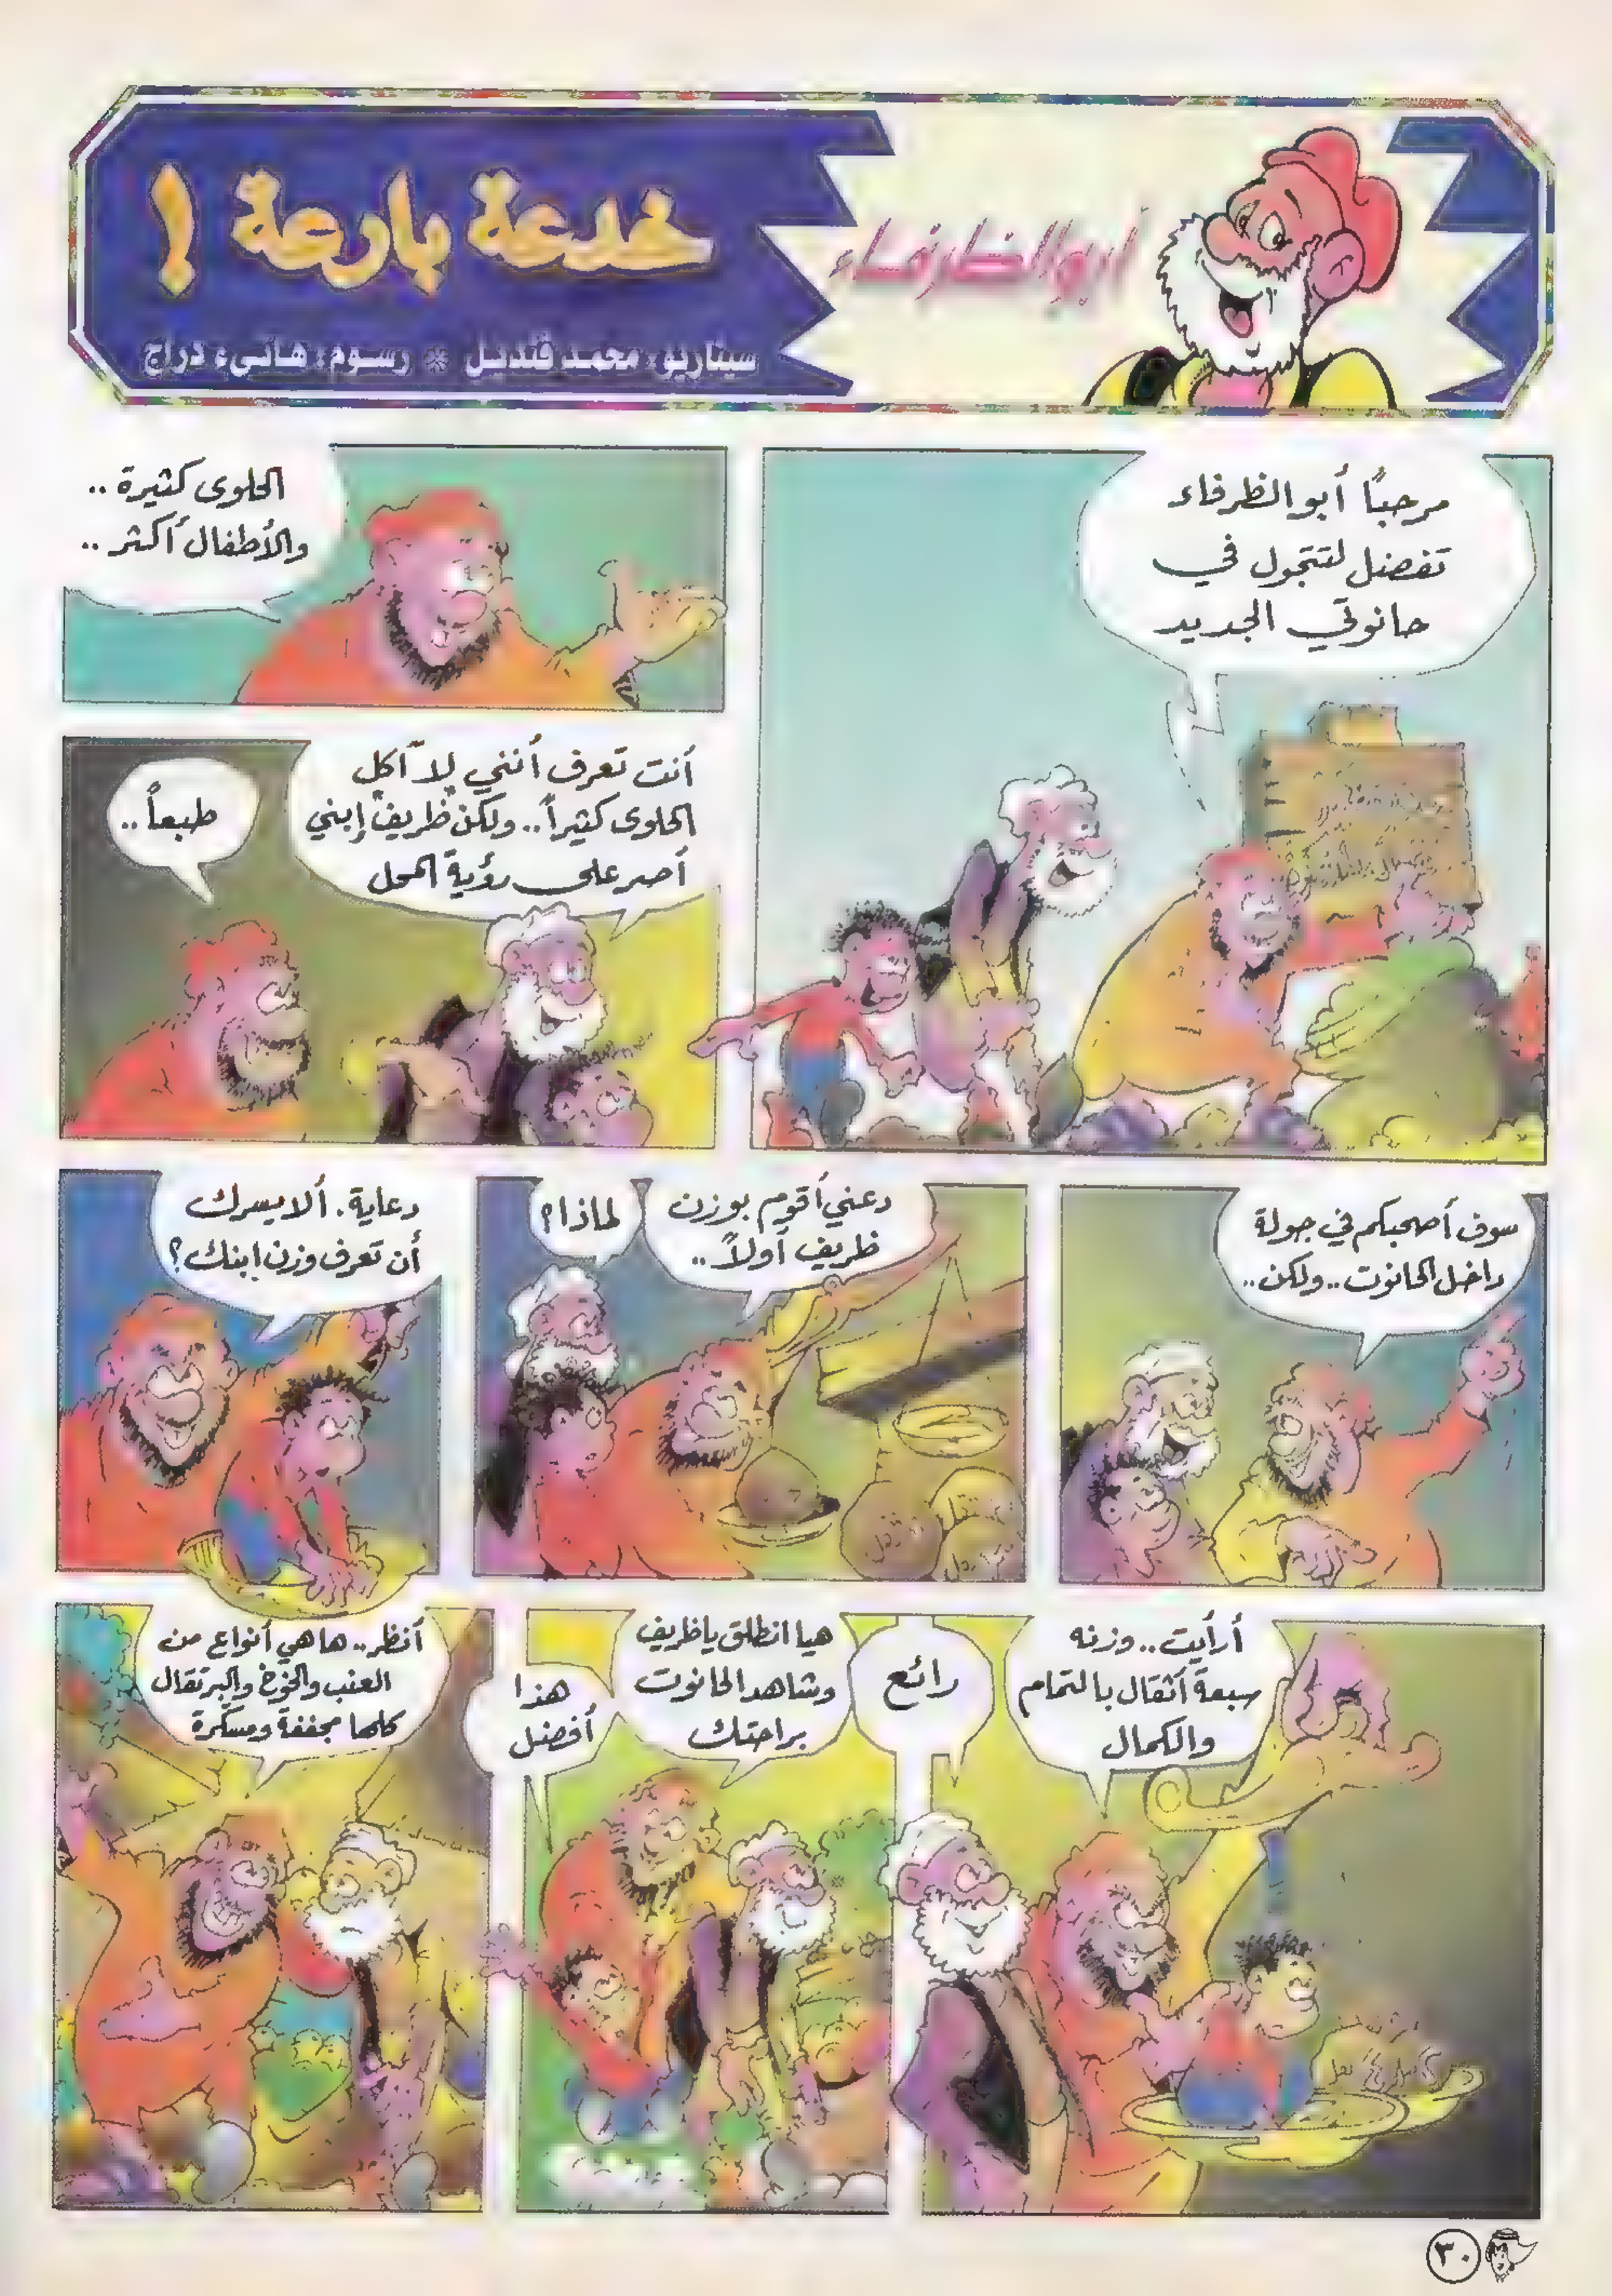 أبو الظرفاء
خدعة بارعة !
سيناريو: محمد قنديل * رسوم: هانيء دراج
مرحبًا أبو الظرفاء
تفضل لتتجول في
حانوتي الجديد
الحلوى كثيرة ..
والأطفال أكثر ..
أنت تعرف أنني لا آكل
الحلوى كثيراً.. ولكن ظريف إبني
أصر على رؤية المحل
طبعاً ..
سوف أصحبكم في جولة
داخل الحانوت .. ولكن ..
دعني أقوم بوزن
ظريف أولاً ..
لماذا؟
دعاية. ألا يسرك
أن تعرف وزن ابنك؟
أرأيت .. وزنه
سبعة أثقال بالتمام
والكمال
رائع
هيا انطلق يا ظريف
وشاهد الحانوت
براحتك
هذا
أفضل
أنظر.. ها هي أنواع من
العنب والخوخ والبرتقال
كلها مجففة ومسكرة
٣٠